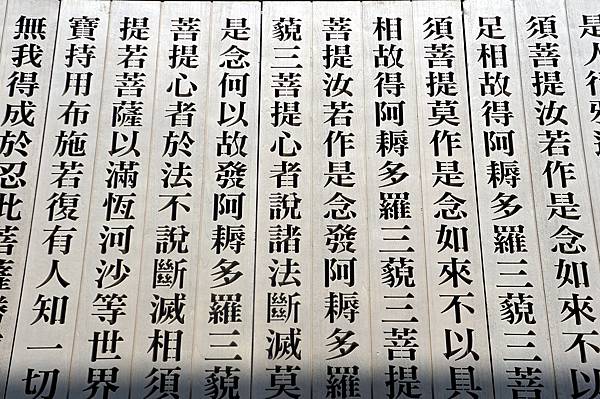 是人行邪道
須菩提汝若作是念如來不以
足相故得阿耨多羅三藐三菩
須菩提莫作是念如來不以具
相故得阿耨多羅三藐三菩提
菩提汝若作是念發阿耨多羅
藐三菩提心者說諸法斷滅莫
是念何以故發阿耨多羅三藐
菩提心者於法不說斷滅相須
提若菩薩以滿恆河沙等世界
寶持用布施若復有人知一切
無我得成於忍此菩薩勝